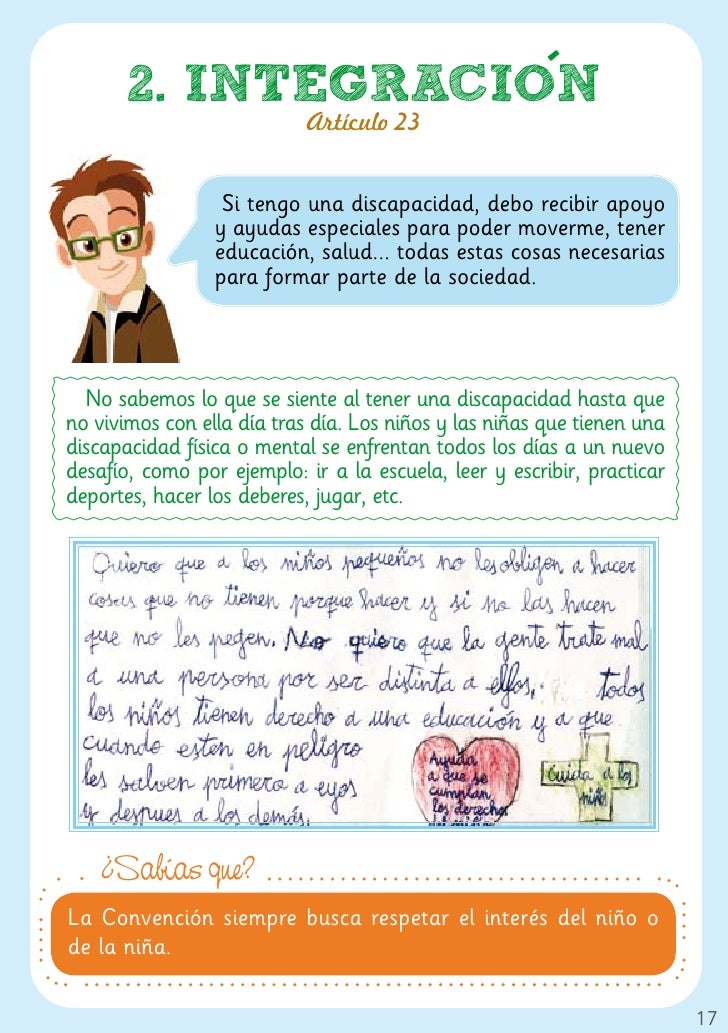 2. INTEGRACIÓN
Artículo 23
Si tengo una discapacidad, debo recibir apoyo
y ayudas especiales para poder moverme, tener
educación, salud... todas estas cosas necesarias
para formar parte de la sociedad.
No sabemos lo que se siente al tener una discapacidad hasta que
no vivimos con ella día tras día. Los niños y las niñas que tienen una
discapacidad física o mental se enfrentan todos los días a un nuevo
desafío, como por ejemplo: ir a la escuela, leer y escribir, practicar
deportes, hacer los deberes, jugar, etc.
Quiero que a los niños pequeños no les obligen a hacer
cosas que no tienen porque hacer y si no las hacen
que no les pegen. No quiero que la gente trate mal
a una persona por ser distinta a ellos. todos
los niños tienen derecho a una educación y a que
cuando esten en peligro
les salven primero a eyos
y despues a los demás.
Ayuda
a que se
cumplan
los derechos
del niño
Cuida a los
niños
¿Sabías que?
La Convención siempre busca respetar el interés del niño o
de la niña.
17